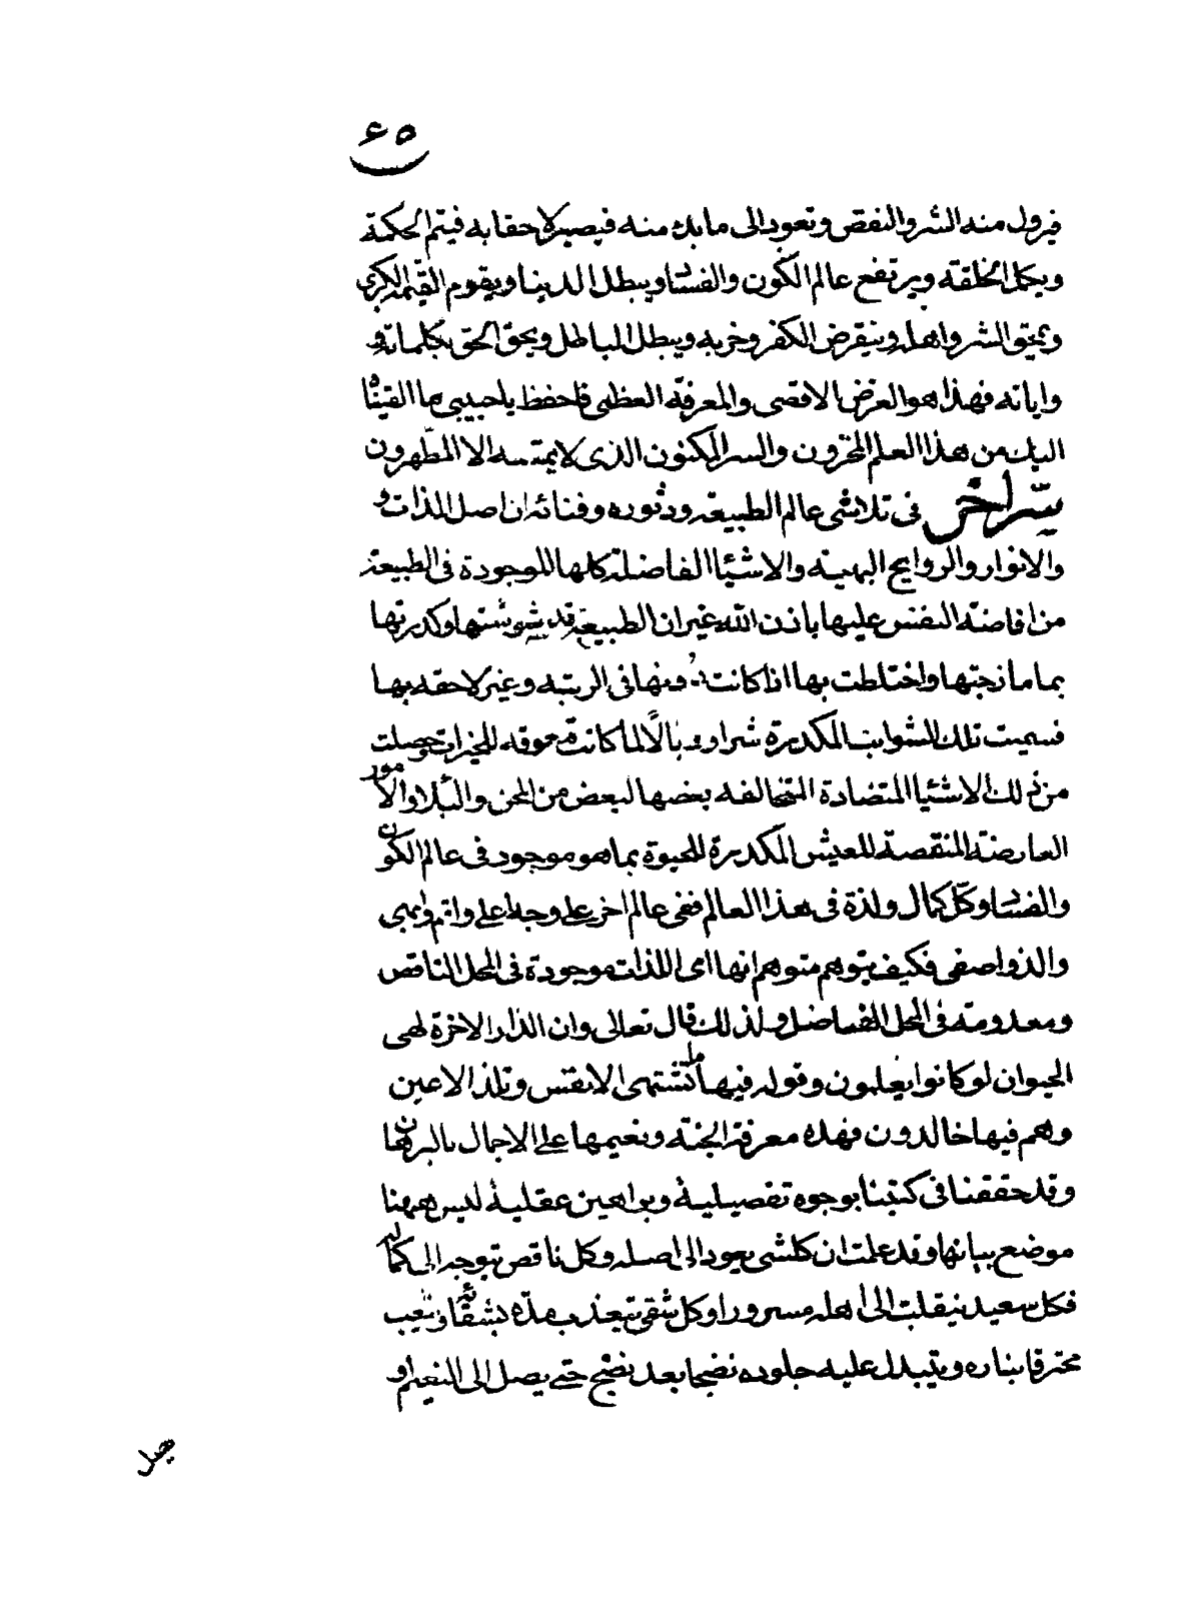 ٤٥
فيزول منه الشر والنقص وتعود الى ما بدء منه فيصير لاحقا به فيتم الحكمة
ويكمل الخلقة ويرتفع عالم الكون والفساد ويبطل الدينا ويقوم القيمة الكبرى
ويمحق الشر واهله وينقرض الكفر وخربه ويبطل الباطل ويحق الحق بكلماته و
واياته فهذا هو الغرض الاقصى والمعرفة العظمى فاحفظ يا حبيبى ما القيناه
اليك من هذا العلم المخزون والسر المكنون الذى لا يمسه الا المطهرون
سر اخر فى تلاشى عالم الطبيعة ودثوره وفنائه ان اصل اللذات و
والانوار والروايح البهية والاشيا الفاضلة كلها الموجودة فى الطبيعة
من افاضة النفس عليها باذن الله غير ان الطبيعة قد شوشتها وكدرتها
بما مازجتها واختلطت بها اذا كانت دونها فى الرتبة وغير لاحقه بها
فسميت تلك الشوايب المكدرة شرا ووبالا لما كانت معوقه للخيرات وحصلت
من ذلك الاشيا المتضادة المتخالفه بعضها لبعض من المحن والبلاء والامور
العارضة المنقصة للعيش المكدرة للحيوة بما هو موجود فى عالم الكون
والفساد وكل كمال ولذة فى هذا العالم ففى عالم اخر على وجه اعلى واتم وابهى
والذ واصفى فكيف يتوهم متوهم انها اى اللذات موجودة فى المحل الناقص
ومعدومة فى المحل الفاضل ولذلك قال تعالى وان الدار الاخرة لهى
الحيوان لو كانوا يعلمون وقوله فيها ما تشتهى الانفس وتلذ الاعين
وهم فيها خالدون فهذه معرفة الجنة ونعيمها على الاجمال بالبرهان
وقد حققنا فى كتبنا بوجوه تفصيلية وبراهين عقلية ليس ههنا
موضع بيانها وقد علمت ان كلشى يعود الى اصله وكل ناقص يتوجه الى كماله
فكل سعيد ينقلب الى اهله مسرورا وكل شقى يتعذب مدة بشقائه ويتعب
محترقا بناره ويتبدل عليه جلوده نضجا بعد نضج حتى يصل الى النعيم او
يصل